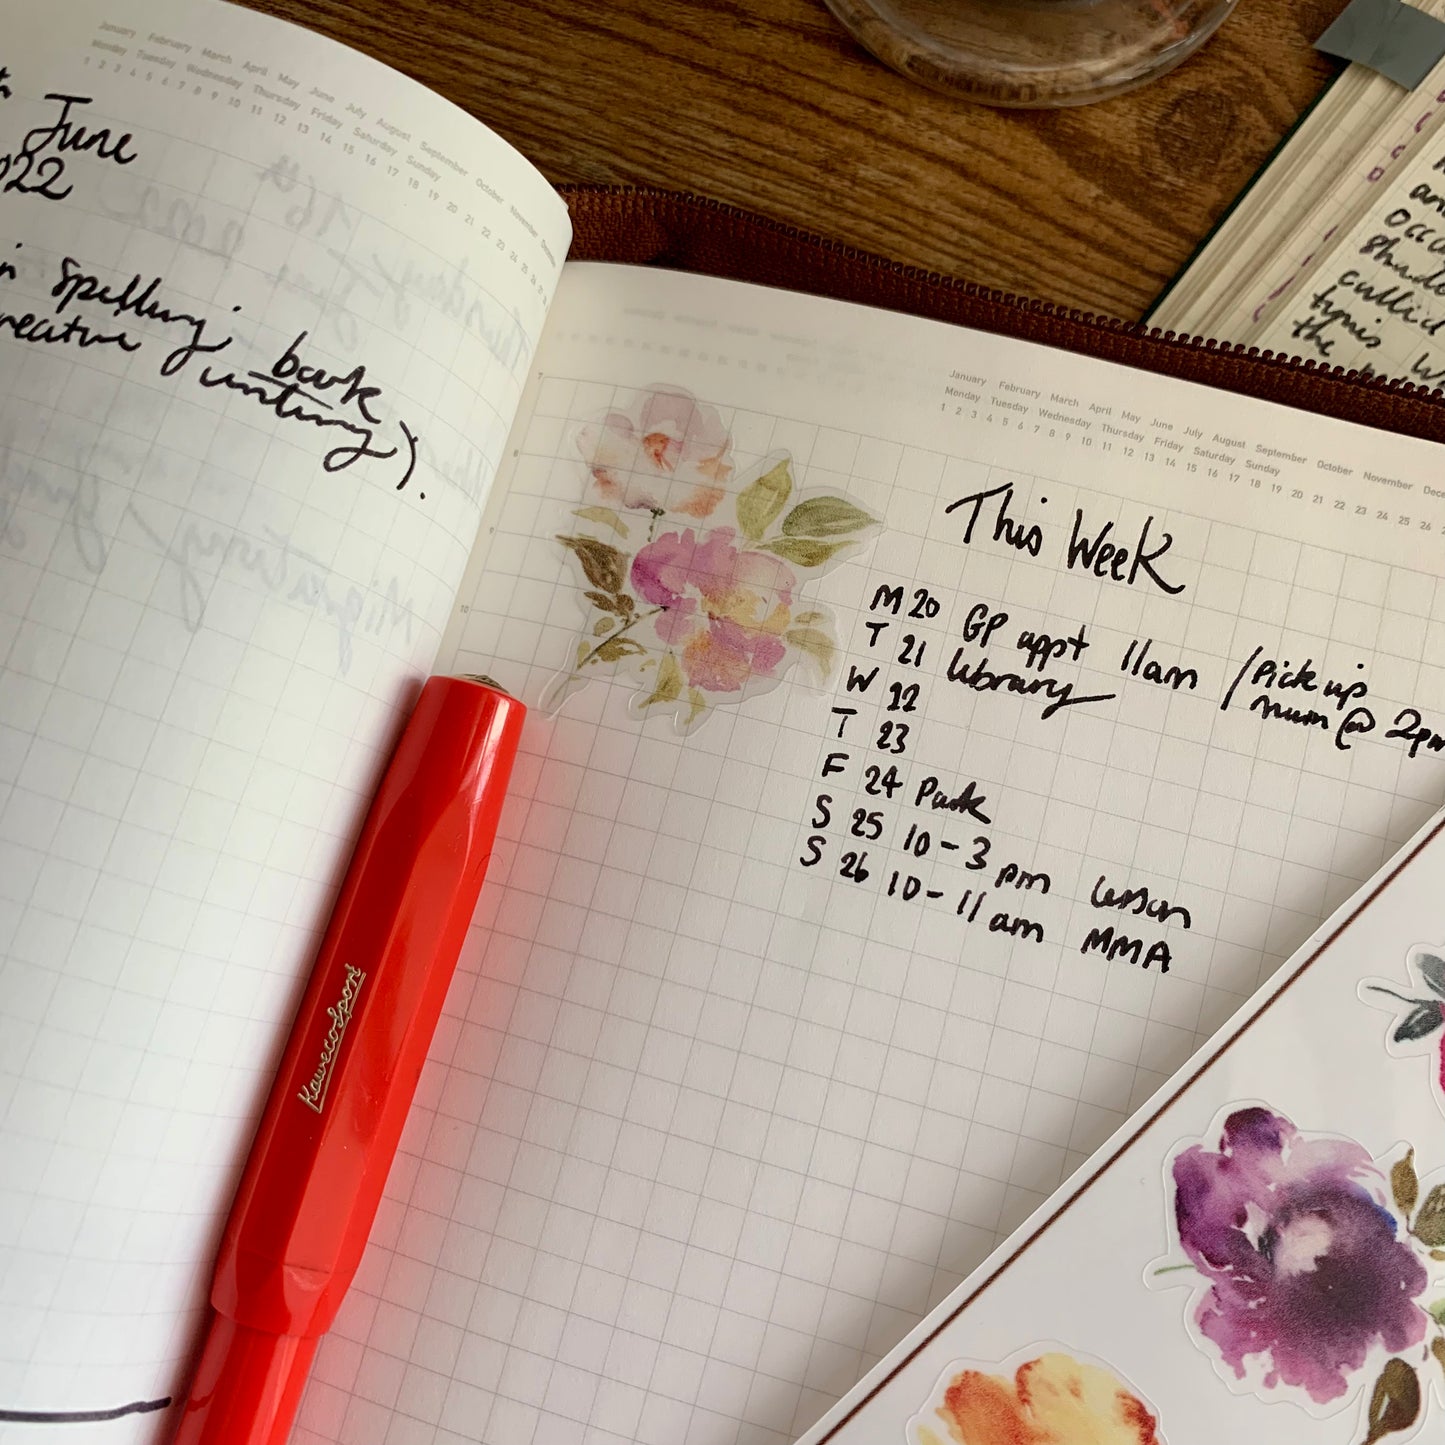 January February March April May June July August September October November December
Monday Tuesday Wednesday Thursday Friday Saturday Sunday
1 2 3 4 5 6 7 8 9 10 11 12 13 14 15 16 17 18 19 20 21 22 23 24 25 26 27 28
June
022
spelling book
reative writing).
KawecoSport
January February March April May June July August September October November Dece
Monday Tuesday Wednesday Thursday Friday Saturday Sunday
1 2 3 4 5 6 7 8 9 10 11 12 13 14 15 16 17 18 19 20 21 22 23 24 25 26
7
8
9
10
This Week
M 20 GP appt 11am / Pick up
mum @ 2pm
T 21 library
W 22
T 23
F 24 Park
S 25 10-3pm lesson
S 26 10-11am MMA
an
occu
shad
the